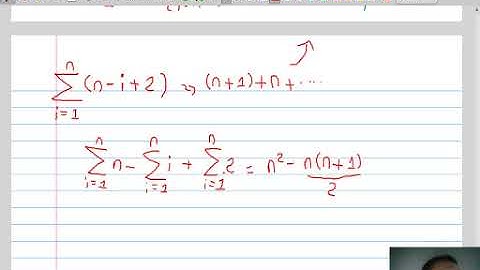 \sum_{i=1}^{n} (n-i+2) \Rightarrow (n+1)+n+\cdots
\sum_{i=1}^{n} n - \sum_{i=1}^{n} i + \sum_{i=1}^{n} 2 = n^2 - \frac{n(n+1)}{2}